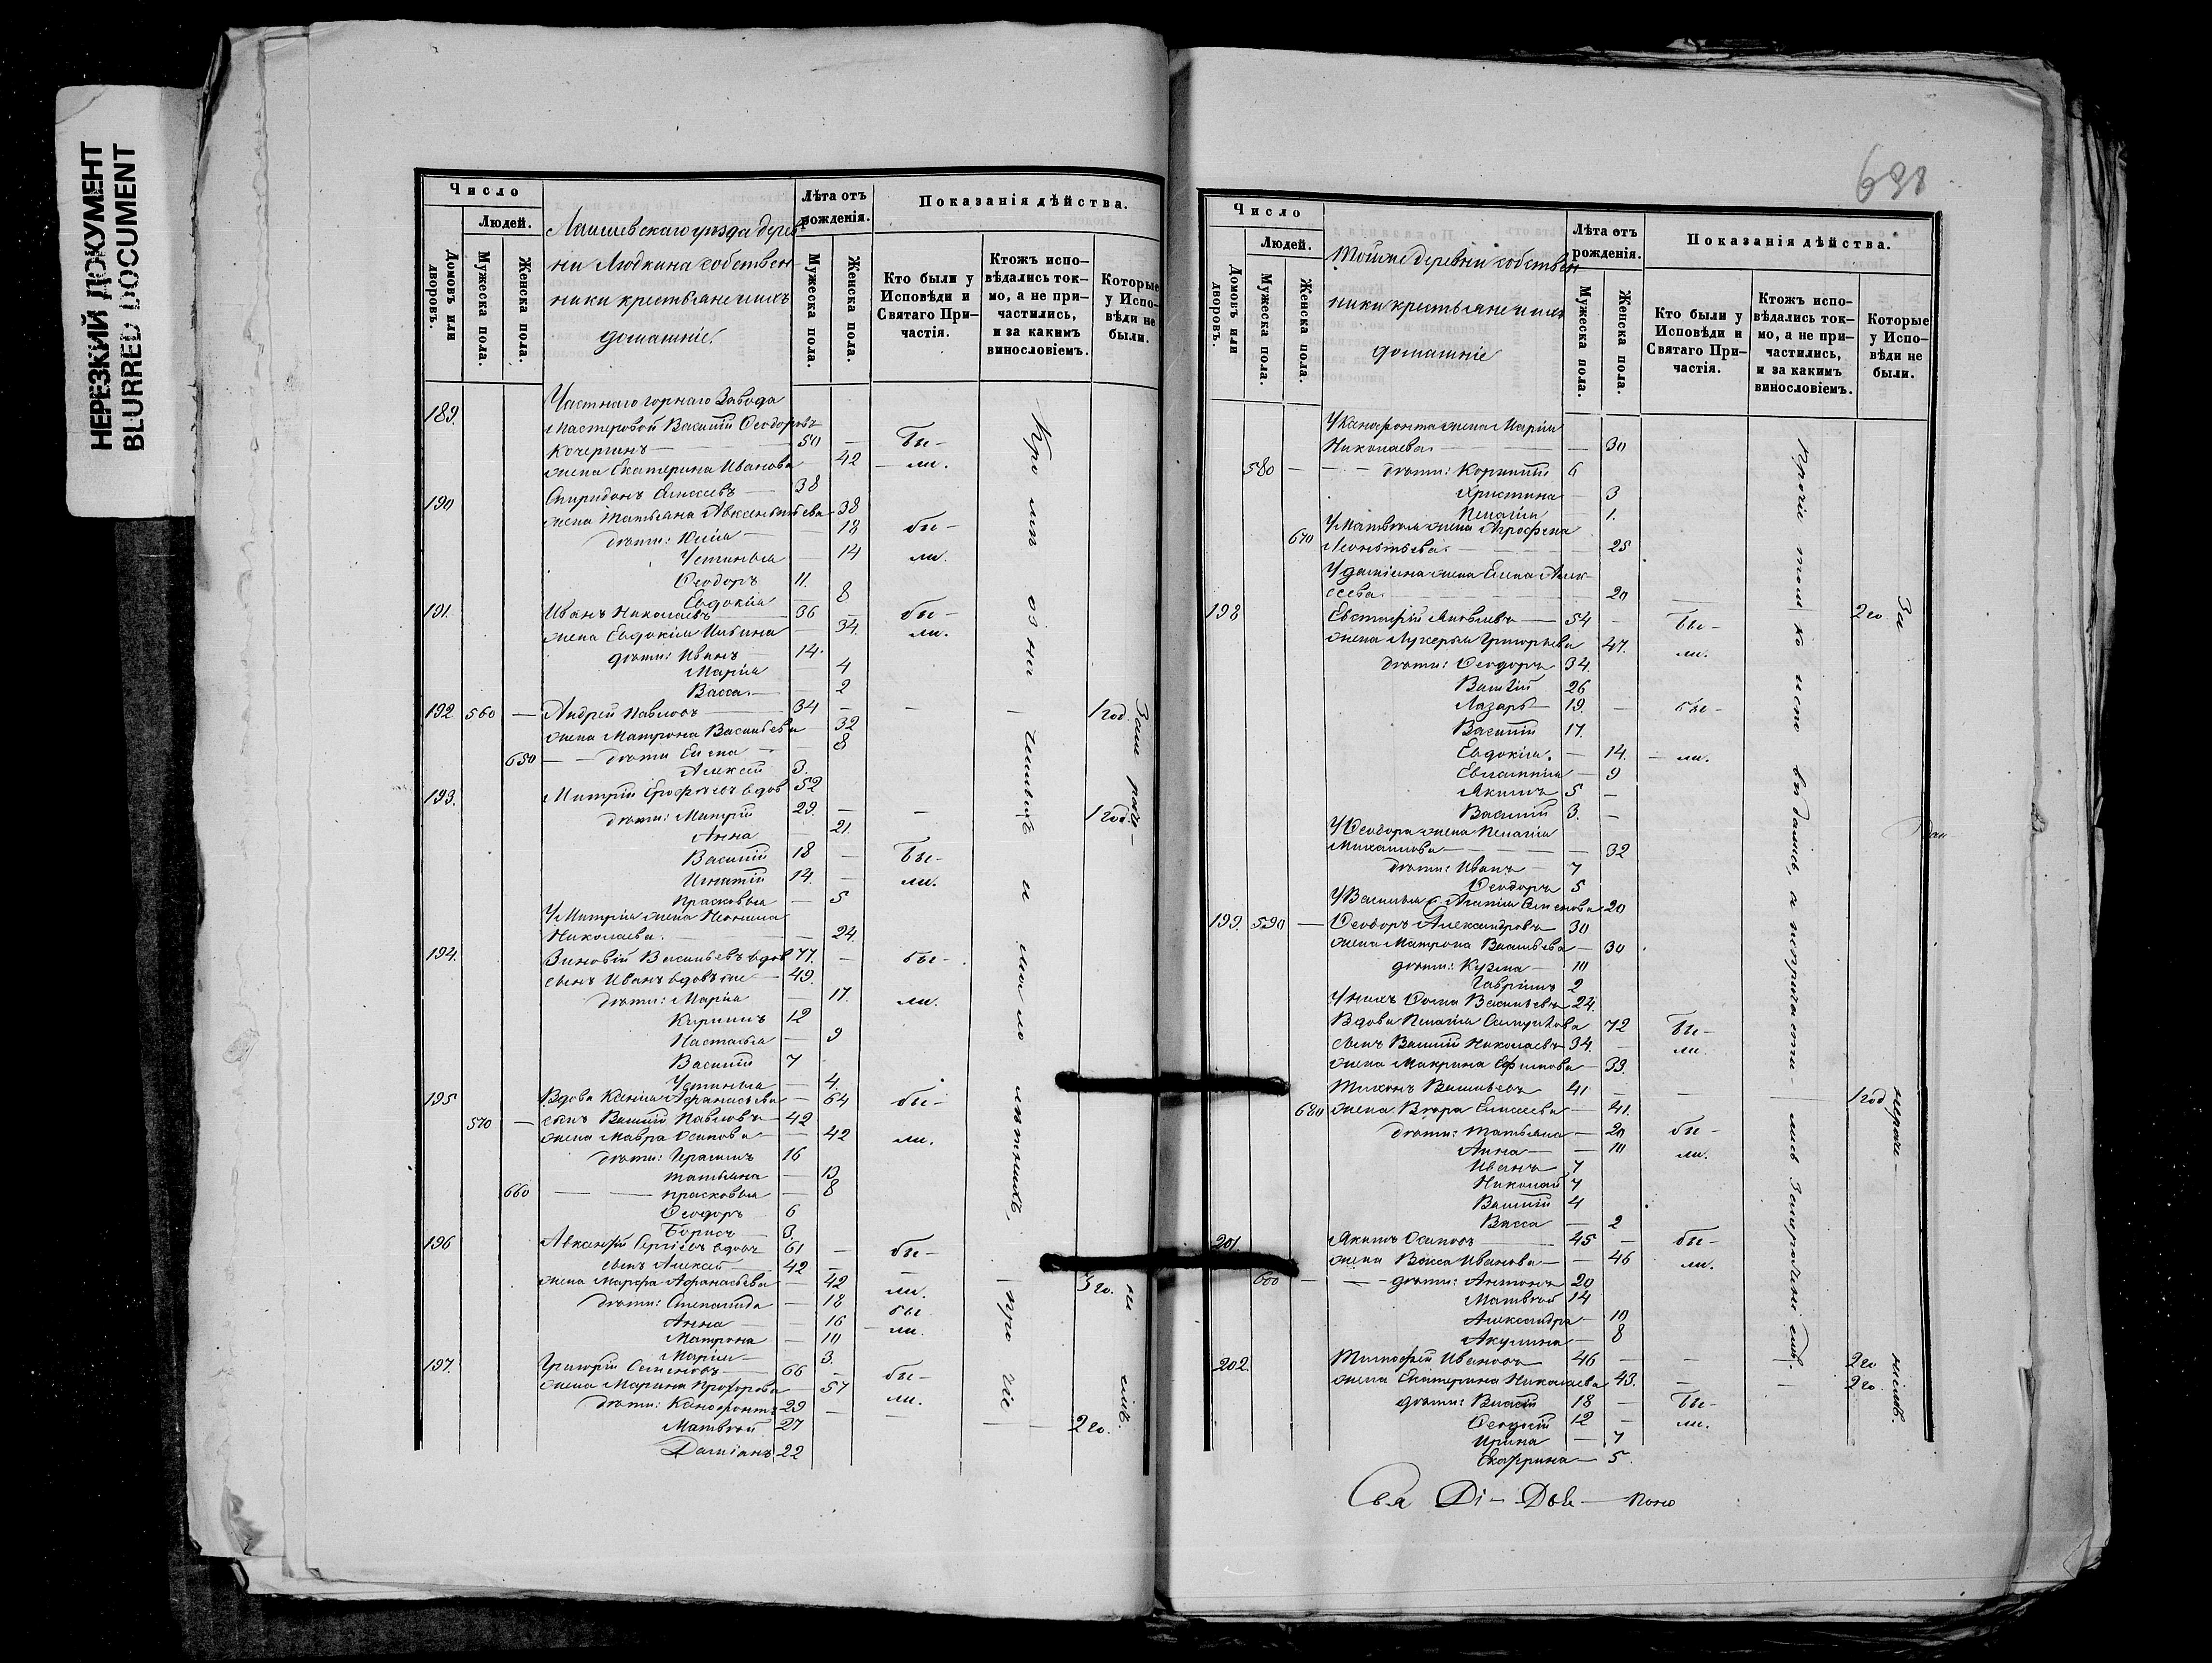 НЕРЕЗКИЙ ДОКУМЕНТ
BLURRED DOCUMENT
Число
Людей.
Домовъ или дворовъ.
Мужеска пола.
Женска пола.
Лаишевскаго уѣзда дерев
ни Людкина собствен
ники крестьяне и ихъ
домашніе.
Лѣта отъ рожденія.
Мужеска пола.
Женска пола.
Показанія дѣйства.
Кто были у Исповѣди и Святаго Причастія.
Ктожъ исповѣдались токмо, а не причастились, и за какимъ винословіемъ.
Которые у Исповѣди не были.
189. Частнаго горнаго Завода
Мастеровой Василій Ѳеодоровъ
Кочергинъ — 50 — бы-
жена Екатерина Иванова 42 — ли.
190 Спиридонъ Елисеевъ — 38
жена Татьяна Авксентьева 38
дѣти: Юлія — 18 бы-
Устинья 14 ли.
Ѳеодоръ 11.
Евдокія — 8
191. Иванъ Николаевъ 36 — бы-
жена Евдокія Ильина — 34. ли.
дѣти: Иванъ — 14.
Марія 4
Васса. — 2
192 560 — Андрей Павловъ 34 — — — 1 год.
жена Матрона Васильева 32
650 — — дѣти Елена — 8
Алексей 3.
193. Митрій Ерофѣевъ вдов 52
дѣти: Митрій 29. — — 1 год.
Анна — 21.
Василій 18 — бы-
Игнатій 14. — ли.
Прасковья — 5
У Митрія жена Неонила
Николаева. — 24.
194. Зиновій Васильевъ вдов 77. — бы-
сынъ Иванъ вдовъ же — 49.
дѣти: Марія — 17. ли.
Кирилъ 12
Настасья — 9
Василій 7
Устинья — 4.
195 Вдова Ксенія Афанасьева — 64 бы-
570 — сынъ Василій Павловъ — 42
жена Мавра Осипова — 42 ли.
дѣти: Герасимъ 16
Татьяна — 13
660 — — Прасковья — 8
Ѳеодоръ 6
Борисъ — 3.
196 Авксентій Сергѣевъ вдовъ 61 — бы-
сынъ Алексей — 42 — —
жена Марфа Афанасьева — 42 ли. 3 го.
дѣти: Степанида — 18 бы-
Анна — 16 — ли.
Матрона — 10
Марія — 3.
197. Григорій Семеновъ — 66 — бы-
жена Марина Прохорова — 57 ли.
дѣти: Ксенофонтъ 29 — —
Матвѣй 27 — — 2 го.
Даміанъ 22
Кро ми оз на чившихъ и мало лѣтнихъ, про чіе
Зане ради-
631
Число
Людей.
Домовъ или дворовъ.
Мужеска пола.
Женска пола.
Тойже деревни собствен
ники крестьяне и ихъ
домашніе
Лѣта отъ рожденія.
Мужеска пола.
Женска пола.
Показанія дѣйства.
Кто были у Исповѣди и Святаго Причастія.
Ктожъ исповѣдались токмо, а не причастились, и за какимъ винословіемъ.
Которые у Исповѣди не были.
У Ксенофонта жена Марія
Николаева. — — 30
580 — — — дѣти: Корнилій 6
Христина — 3
Пелагія — 1.
У Матвѣя жена Агрофена
670 Леонтьева. — 25
У Даміана жена Елена Алек-
сеева. — 20
198 Евстафій Яковлевъ — 54 — бы- 2 го
жена Лукерья Григорьева 47. ли.
дѣти: Ѳеодоръ 34.
Василій 26
Лазарь — 19. — бы-
Василій 17.
Евдокія. — 14. — ли.
Евлампія — 9
Якимъ 5 —
Василій 3. —
У Ѳеодора жена Пелагія
Михаилова — — 32
дѣти: Иванъ — 7
Ѳеодоръ 5
У Василья Агапія Семенова 20
199. 590 — Ѳеодоръ Александровъ 30
жена Матрона Васильева — 30
дѣти: Кузма — 10
Гаврилъ 2
У нихъ Ѳома Васильевъ 24.
Вдова Пелагія 72 бы-
сынъ Василій Николаевъ 34. — ли.
жена Макрина Ефимова — 33.
Тихонъ Васильевъ 41 — — — 1 год
680 жена Вѣра Елисеева — 41.
дѣти: Татьяна — 20 бы-
Анна — — 10 ли.
Иванъ 7
Николай 7
Василій 4
Васса — 2
201. Якимъ Осиповъ 45 — бы-
жена Васса Иванова — 46 ли.
600 — — дѣти: Антонъ 20
Матвѣй 14
Александра — 10
Акулина — 8
202. Тимофей Ивановъ 46 — — — 2 го
жена Екатерина Николаева 43. — — 2 го.
дѣти: Василій 18 — бы-
Ѳеодосій 12 — ли.
Ирина — 7
Екатерина — 5.
Прочіе токмо испо вѣдались, а непричасти лись
За нераде- ніемъ.
Свя Ді- Дъ — Поно